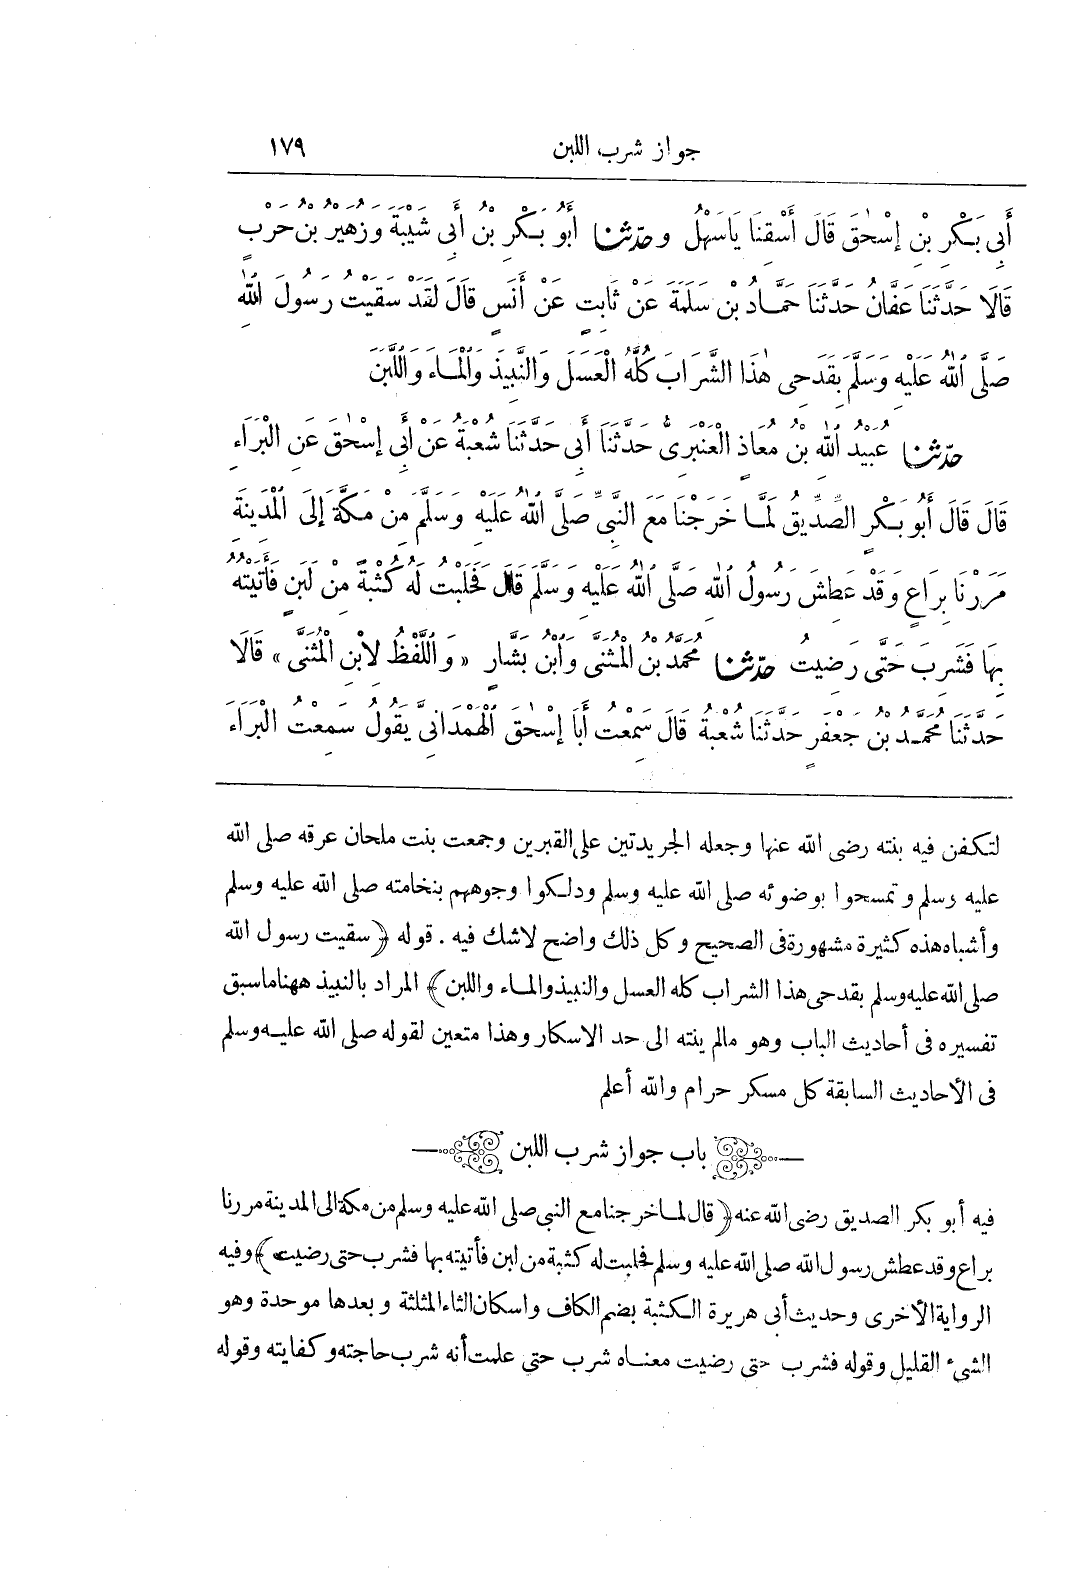 جواز شرب اللبن ١٧٩
أَبِى بَكْرِ بْنِ إِسْحٰقَ قَالَ أَسْقِنَا يَاسَهْلُ وحدّثنا أَبُو بَكْرِ بْنُ أَبِى شَيْبَةَ وَزُهَيْرُ بْنُ حَرْبٍ
قَالَا حَدَّثَنَا عَفَّانُ حَدَّثَنَا حَمَّادُ بْنُ سَلَمَةَ عَنْ ثَابِتٍ عَنْ أَنَسٍ قَالَ لَقَدْ سَقَيْتُ رَسُولَ اللهِ
صَلَّى اللهُ عَلَيْهِ وَسَلَّمَ بِقَدَحِى هٰذَا الشَّرَابَ كُلَّهُ الْعَسَلَ وَالنَّبِيذَ وَالْمَاءَ وَاللَّبَنَ
حدّثنا عُبَيْدُ اللهِ بْنُ مُعَاذٍ الْعَنْبَرِىُّ حَدَّثَنَا أَبِى حَدَّثَنَا شُعْبَةُ عَنْ أَبِى إِسْحٰقَ عَنِ الْبَرَاءِ
قَالَ قَالَ أَبُو بَكْرٍ الصِّدِّيقُ لَمَّا خَرَجْنَا مَعَ النَّبِىِّ صَلَّى اللهُ عَلَيْهِ وَسَلَّمَ مِنْ مَكَّةَ إِلَى الْمَدِينَةِ
مَرَرْنَا بِرَاعٍ وَقَدْ عَطِشَ رَسُولُ اللهِ صَلَّى اللهُ عَلَيْهِ وَسَلَّمَ قَالَ فَحَلَبْتُ لَهُ كُثْبَةً مِنْ لَبَنٍ فَأَتَيْتُهُ
بِهَا فَشَرِبَ حَتَّى رَضِيتُ حدّثنا مُحَمَّدُ بْنُ الْمُثَنَّى وَابْنُ بَشَّارٍ «وَاللَّفْظُ لِابْنِ الْمُثَنَّى» قَالَا
حَدَّثَنَا مُحَمَّدُ بْنُ جَعْفَرٍ حَدَّثَنَا شُعْبَةُ قَالَ سَمِعْتُ أَبَا إِسْحٰقَ الْهَمْدَانِىَّ يَقُولُ سَمِعْتُ الْبَرَاءَ
لتكفن فيه بنته رضى الله عنها وجعله الجريدتين على القبرين وجمعت بنت ملحان عرقه صلى الله
عليه وسلم وتمسحوا بوضوئه صلى الله عليه وسلم ودلكوا وجوههم بنخامته صلى الله عليه وسلم
وأشباه هذه كثيرة مشهورة فى الصحيح وكل ذلك واضح لاشك فيه . قوله ﴿سقيت رسول الله
صلى الله عليه وسلم بقدحى هذا الشراب كله العسل والنبيذ والماء واللبن﴾ المراد بالنبيذ ههنا ماسبق
تفسيره فى أحاديث الباب وهو مالم ينته الى حد الاسكار وهذا متعين لقوله صلى الله عليه وسلم
فى الأحاديث السابقة كل مسكر حرام والله أعلم
باب جواز شرب اللبن
فيه أبو بكر الصديق رضى الله عنه ﴿قال لما خرجنا مع النبى صلى الله عليه وسلم من مكة الى المدينة مررنا
براع وقد عطش رسول الله صلى الله عليه وسلم فحلبت له كثبة من لبن فأتيته بها فشرب حتى رضيت﴾ وفيه
الرواية الأخرى وحديث أبى هريرة الكثبة بضم الكاف واسكان الثاء المثلثة وبعدها موحدة وهو
الشىء القليل وقوله فشرب حتى رضيت معناه شرب حتى علمت أنه شرب حاجته وكفايته وقوله